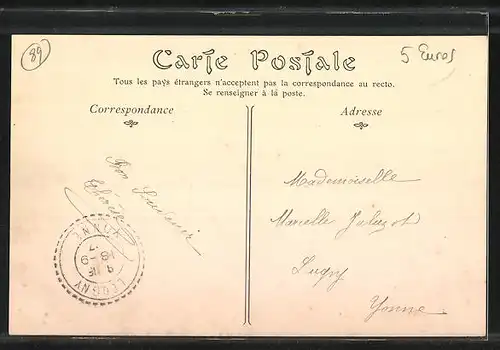 89
Carte Postale
5 Euros
Tous les pays étrangers n'acceptent pas la correspondance au recto.
Se renseigner à la poste.
Correspondance
Adresse
Bon Souvenir
Mademoiselle
Marcelle
Yonne
YONNE
18-9
LEUGNY